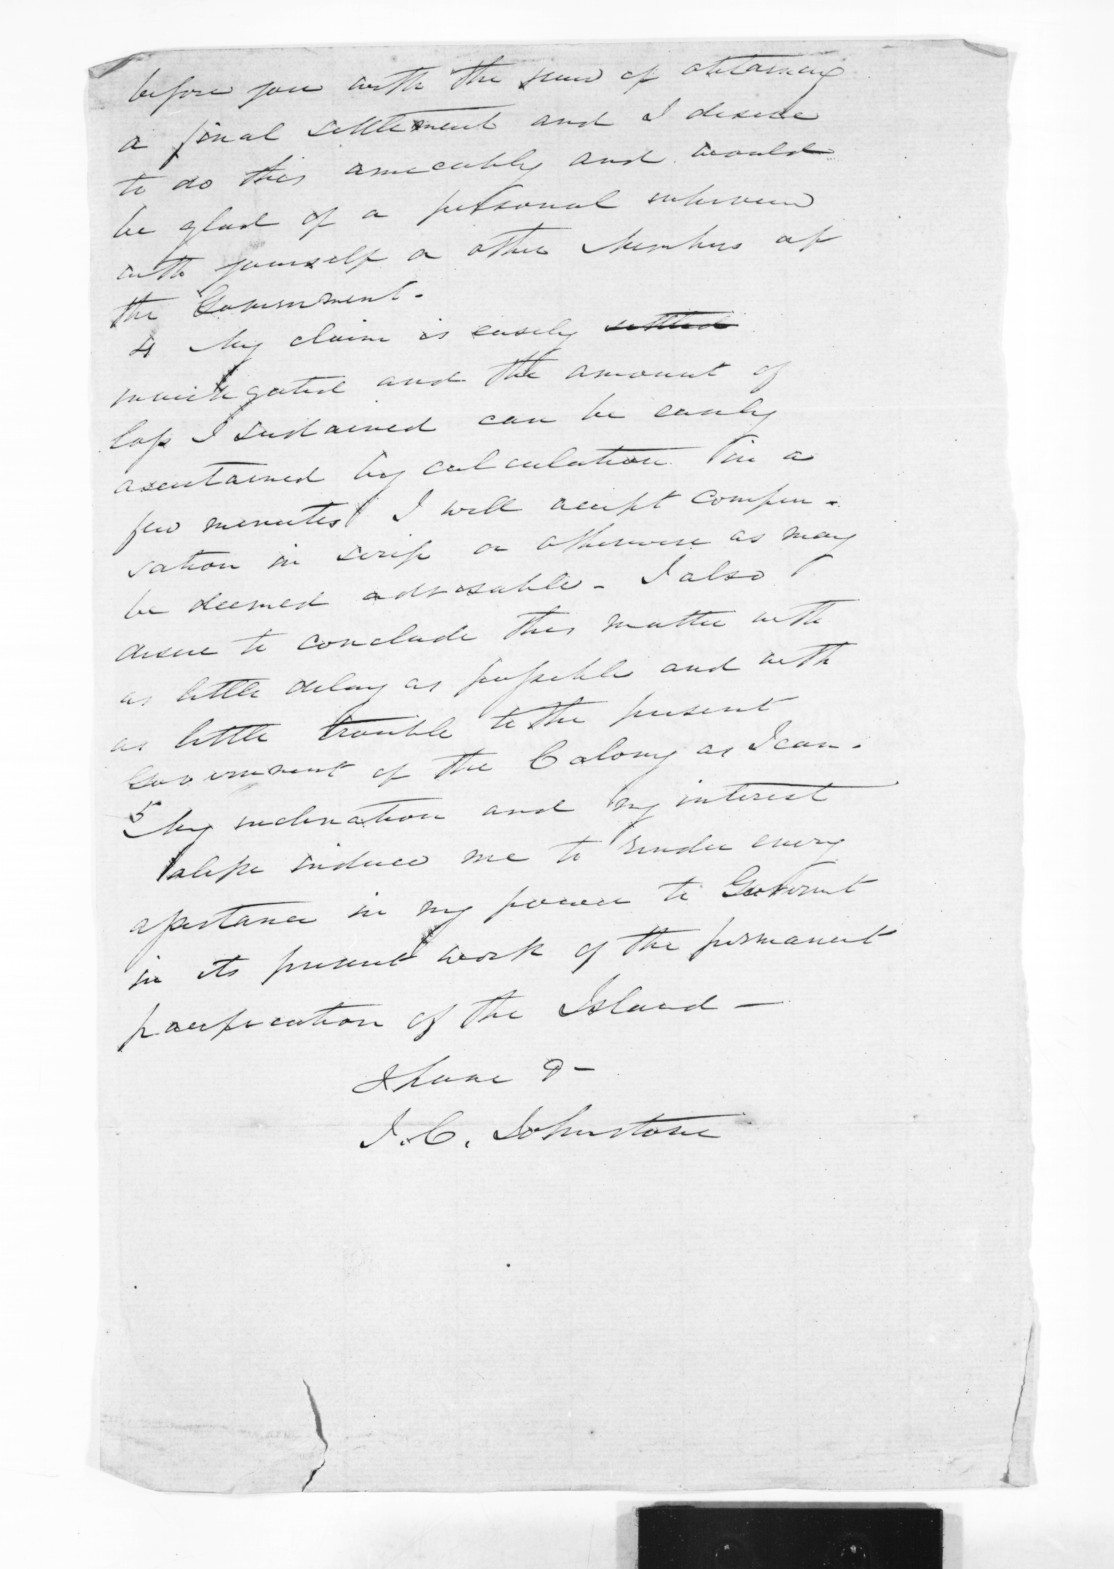 before you with the view of obtaining
a final settlement and I desire
to do this amicably and would
be glad of a personal interview
with yourself or other Members of
the Government.
4 My claim is easily settled
investigated and the amount of
loss I sustained can be easily
ascertained by calculation in a
few minutes I will accept compen-
sation in scrip or otherwise as may
be deemed advisable - I also
desire to conclude this matter with
as little delay as possible and with
as little trouble to the present
Government of the Colony as I can.
5 My inclination and my interest
alike induce me to render every
assistance in my power to Governt
in its present work of the permanent
pacification of the Island -
I have &-
J. C. Johnstone